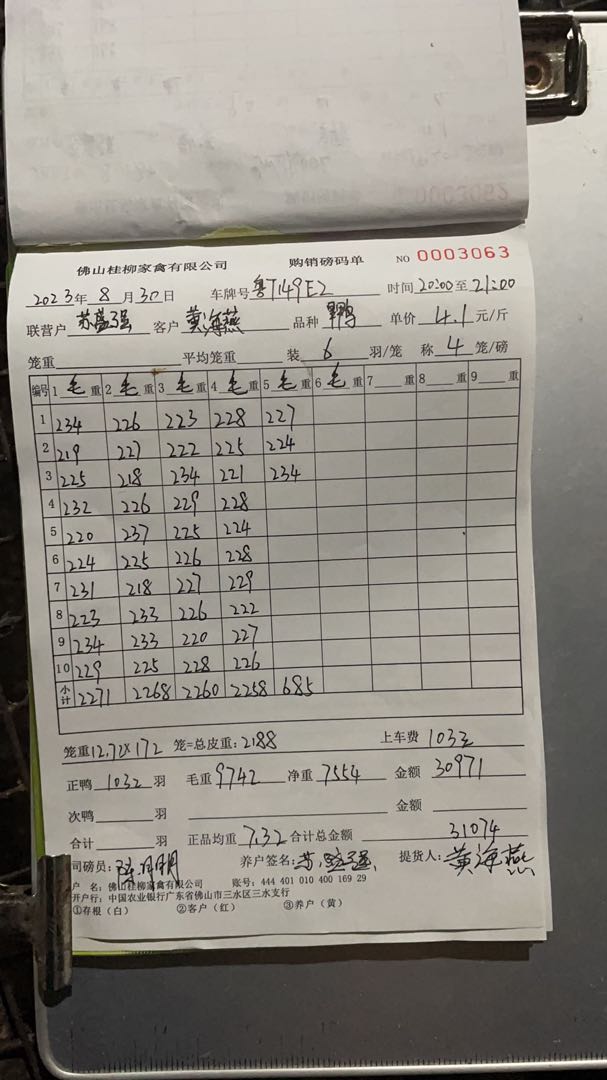 佛山桂柳家禽有限公司 购销磅码单 NO 0003063
2023年 8 月 30 日 车牌号 粤T149E2 时间 20:00 至 21:00
联营户 苏盛强 客户 黄海燕 品种 鸭 单价 4.1 元/斤
笼重 平均笼重 装 6 羽/笼 称 4 笼/磅
编号 1 毛 重 2 毛 重 3 毛 重 4 毛 重 5 毛 重 6 毛 重 7 重 8 重 9 重
1 234 226 223 228 227
2 219 227 222 225 224
3 225 218 234 221 234
4 232 226 229 228
5 220 237 225 224
6 224 225 226 228
7 231 218 227 229
8 223 233 226 222
9 234 233 220 227
10 229 225 228 226
小计 2271 2268 2260 2258 685
笼重 12.72×172 笼=总皮重: 2188 上车费 103元
正鸭 1032 羽 毛重 9742 净重 7554 金额 30971
次鸭 羽 金额
合计 羽 正品均重 7.32 合计总金额 31074
司磅员: 养户签名: 苏盛强 提货人: 黄海燕
户 名: 佛山桂柳家禽有限公司 账号: 444 401 010 400 169 29
开户行: 中国农业银行广东省佛山市三水区三水支行
①存根（白） ②客户（红） ③养户（黄）